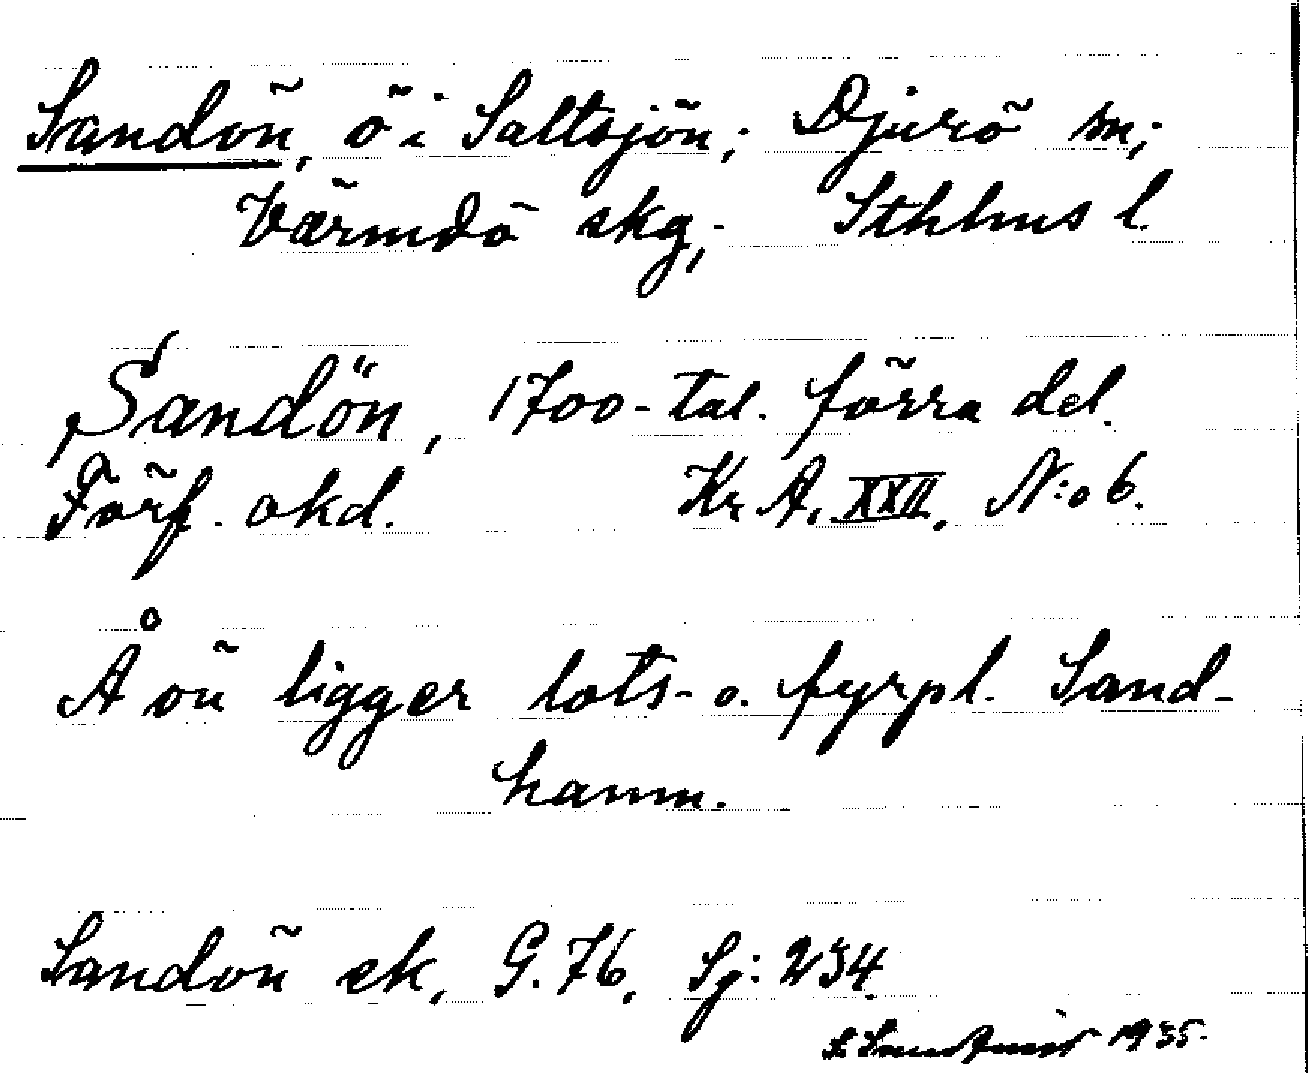 Sandön, ö i Saltsjön; Djurö sn;
Värmdö skg; Sthlms l.
Sandön, 1700-tal. förra del.
Förf. okd. Kr A. XXII. N:o 6.
Å ön ligger lots- o. fyrpl. Sand-
hamn.
Sandön ek, G. 76, Sg: 234.
1935.